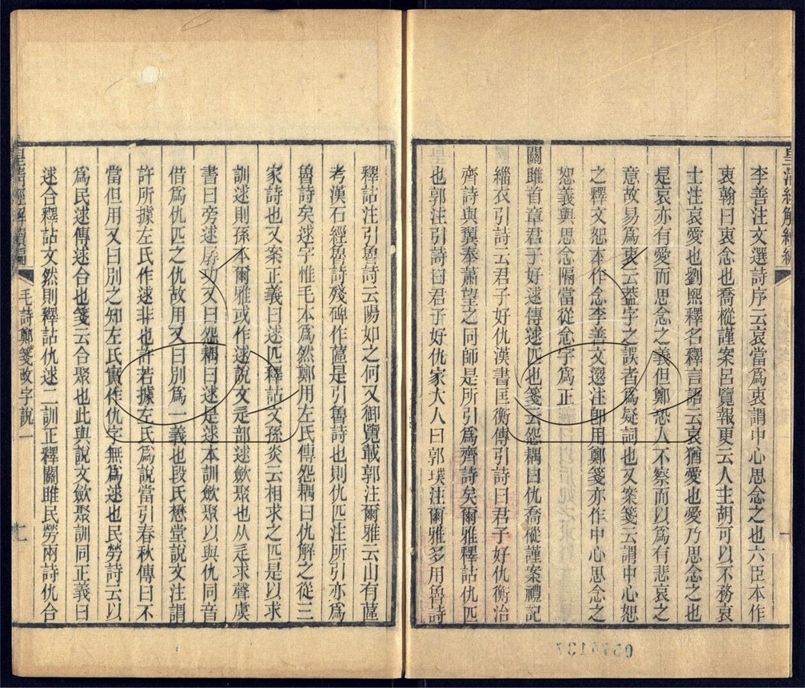 李善注文選詩序云哀當爲衷謂中心思念之也六臣本作
衷翰曰衷念也喬樅謹案呂覽報更云人主胡可以不務哀
士注哀愛也劉熙釋名釋言語云哀猶愛也愛乃思念之也
是哀亦有愛而思念之義但鄭恐人不察而以爲有悲哀之
意故易爲衷云蓋字之誤者爲疑詞也又案箋云謂中心恕
之釋文恕本作念李善文選注卽用鄭箋亦作中心思念之
恕義與思念隔當從念字爲正
關雎首章君子好逑傳逑匹也箋云怨耦曰仇喬樅謹案禮記
緇衣引詩云君子好仇漢書匡衡傳引詩曰君子好仇衡治
齊詩與翼奉蕭望之同師是所引爲齊詩矣爾雅釋詁仇匹
也郭注引詩曰君子好仇家大人曰郭璞注爾雅多用魯詩
皇清經解續編
釋詁注引魯詩云陽如之何又御覽載郭注爾雅云山有蓲
考漢石經魯詩殘碑作蓲是引魯詩也則仇匹注所引亦爲
魯詩矣逑字惟毛本爲然鄭用左氏傳怨耦曰仇解之從三
家詩也又案正義曰逑匹釋詁文孫炎云相求之匹是以求
訓逑則孫本爾雅或作逑說文辵部逑斂聚也从辵求聲虞
書曰旁逑孱功又曰怨耦曰逑是逑本訓斂聚以與仇同音
借爲仇匹之仇故用又曰別爲一義也段氏懋堂說文注謂
許所據左氏作逑非也許若據左氏爲說當引春秋傳曰不
當但用又曰別之知左氏實作仇字無爲逑也民勞詩云以
爲民逑傳逑合也箋云合聚也此與說文斂聚訓同正義曰
逑合釋詁文然則釋詁仇逑二訓正釋關雎民勞兩詩仇合
皇清經解續編
毛詩鄭箋改字說一